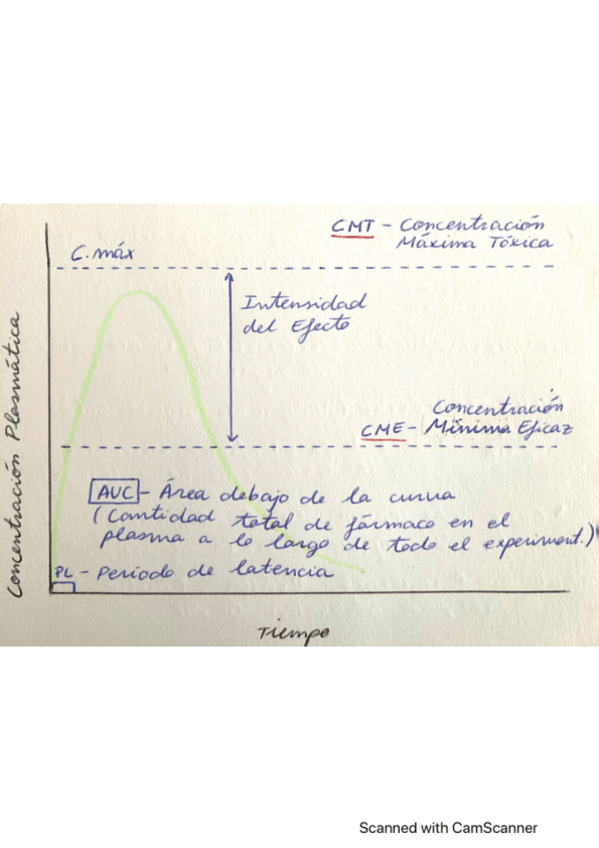 CMT - Concentración
Máxima Tóxica
C. máx
Intensidad
del Efecto
Concentración
CME - Mínima Eficaz
AUC - Área debajo de la curva
(Cantidad total de fármaco en el
plasma a lo largo de todo el experiment.)
PL - Periodo de latencia
Concentración Plasmática
Tiempo
Scanned with CamScanner